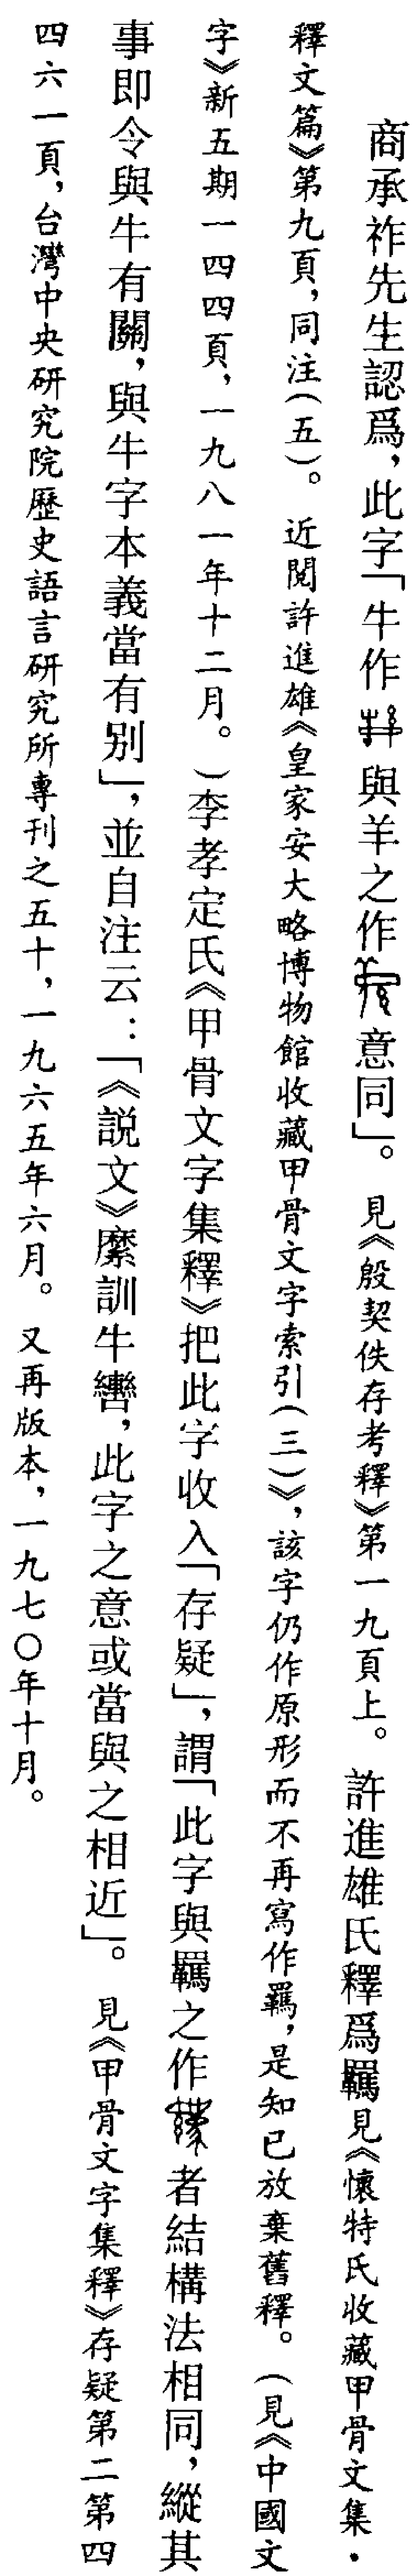 商承祚先生認爲，此字「牛作與羊之作意同」。見《殷契佚存考釋》第一九頁上。許進雄氏釋爲羈見《懷特氏收藏甲骨文集·
釋文篇》第九頁，同注（五）。近閱許進雄《皇家安大略博物館收藏甲骨文字索引（三）》，該字仍作原形而不再寫作羈，是知已放棄舊釋。（見《中國文
字》新五期一四四頁，一九八一年十二月。）李孝定氏《甲骨文字集釋》把此字收入「存疑」，謂「此字與羈之作者結構法相同，縱其
事即令與牛有關，與牛字本義當有別」，並自注云：「《說文》縻訓牛轡，此字之意或當與之相近」。見《甲骨文字集釋》存疑第二第四
四六一頁，台灣中央研究院歷史語言研究所專刊之五十，一九六五年六月。又再版本，一九七〇年十月。